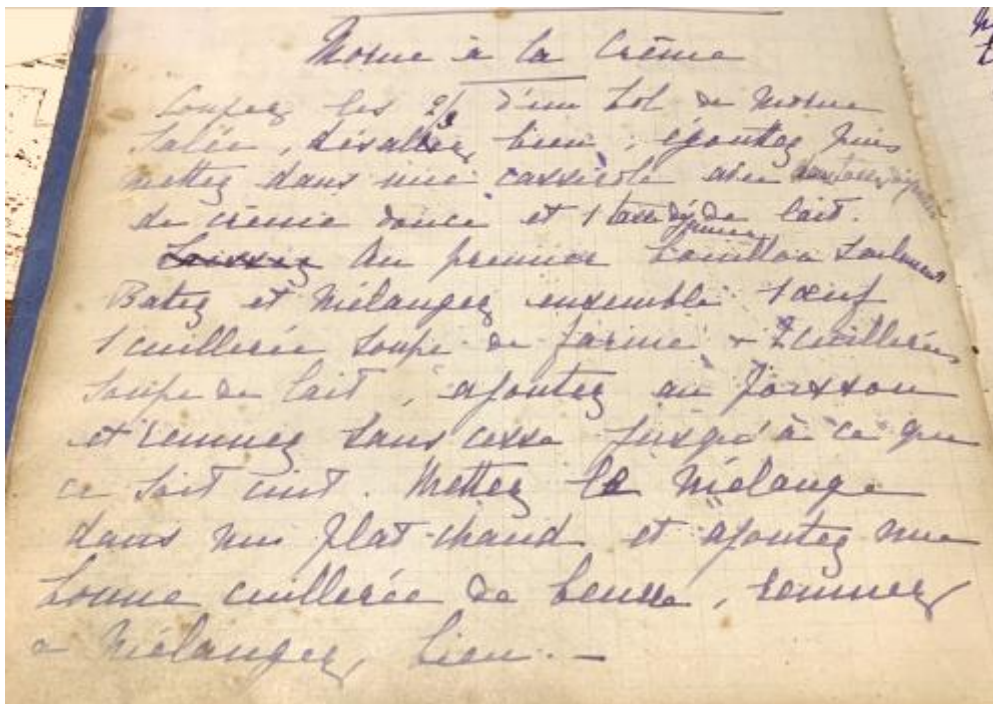 Morue à la Crème
Coupez les 2/3 d'un bol de morue
salée, désallez bien, égouttez puis
mettez dans une casserole avec deux tasses déjeuner
de crème douce et 1 tasse déjeuner de lait.
Laissez Au premier bouillon seulement
Batez et mélangez ensemble 1 œuf
1 cuillerée soupe de farine + 2 cuillerées
soupe de lait, ajoutez au poisson
et remuez sans cesse jusqu'à ce que
ce soit cuit. Mettez le mélange
dans un plat chaud et ajoutez une
bonne cuillerée de beurre, remuez
Mélangez, bien. —